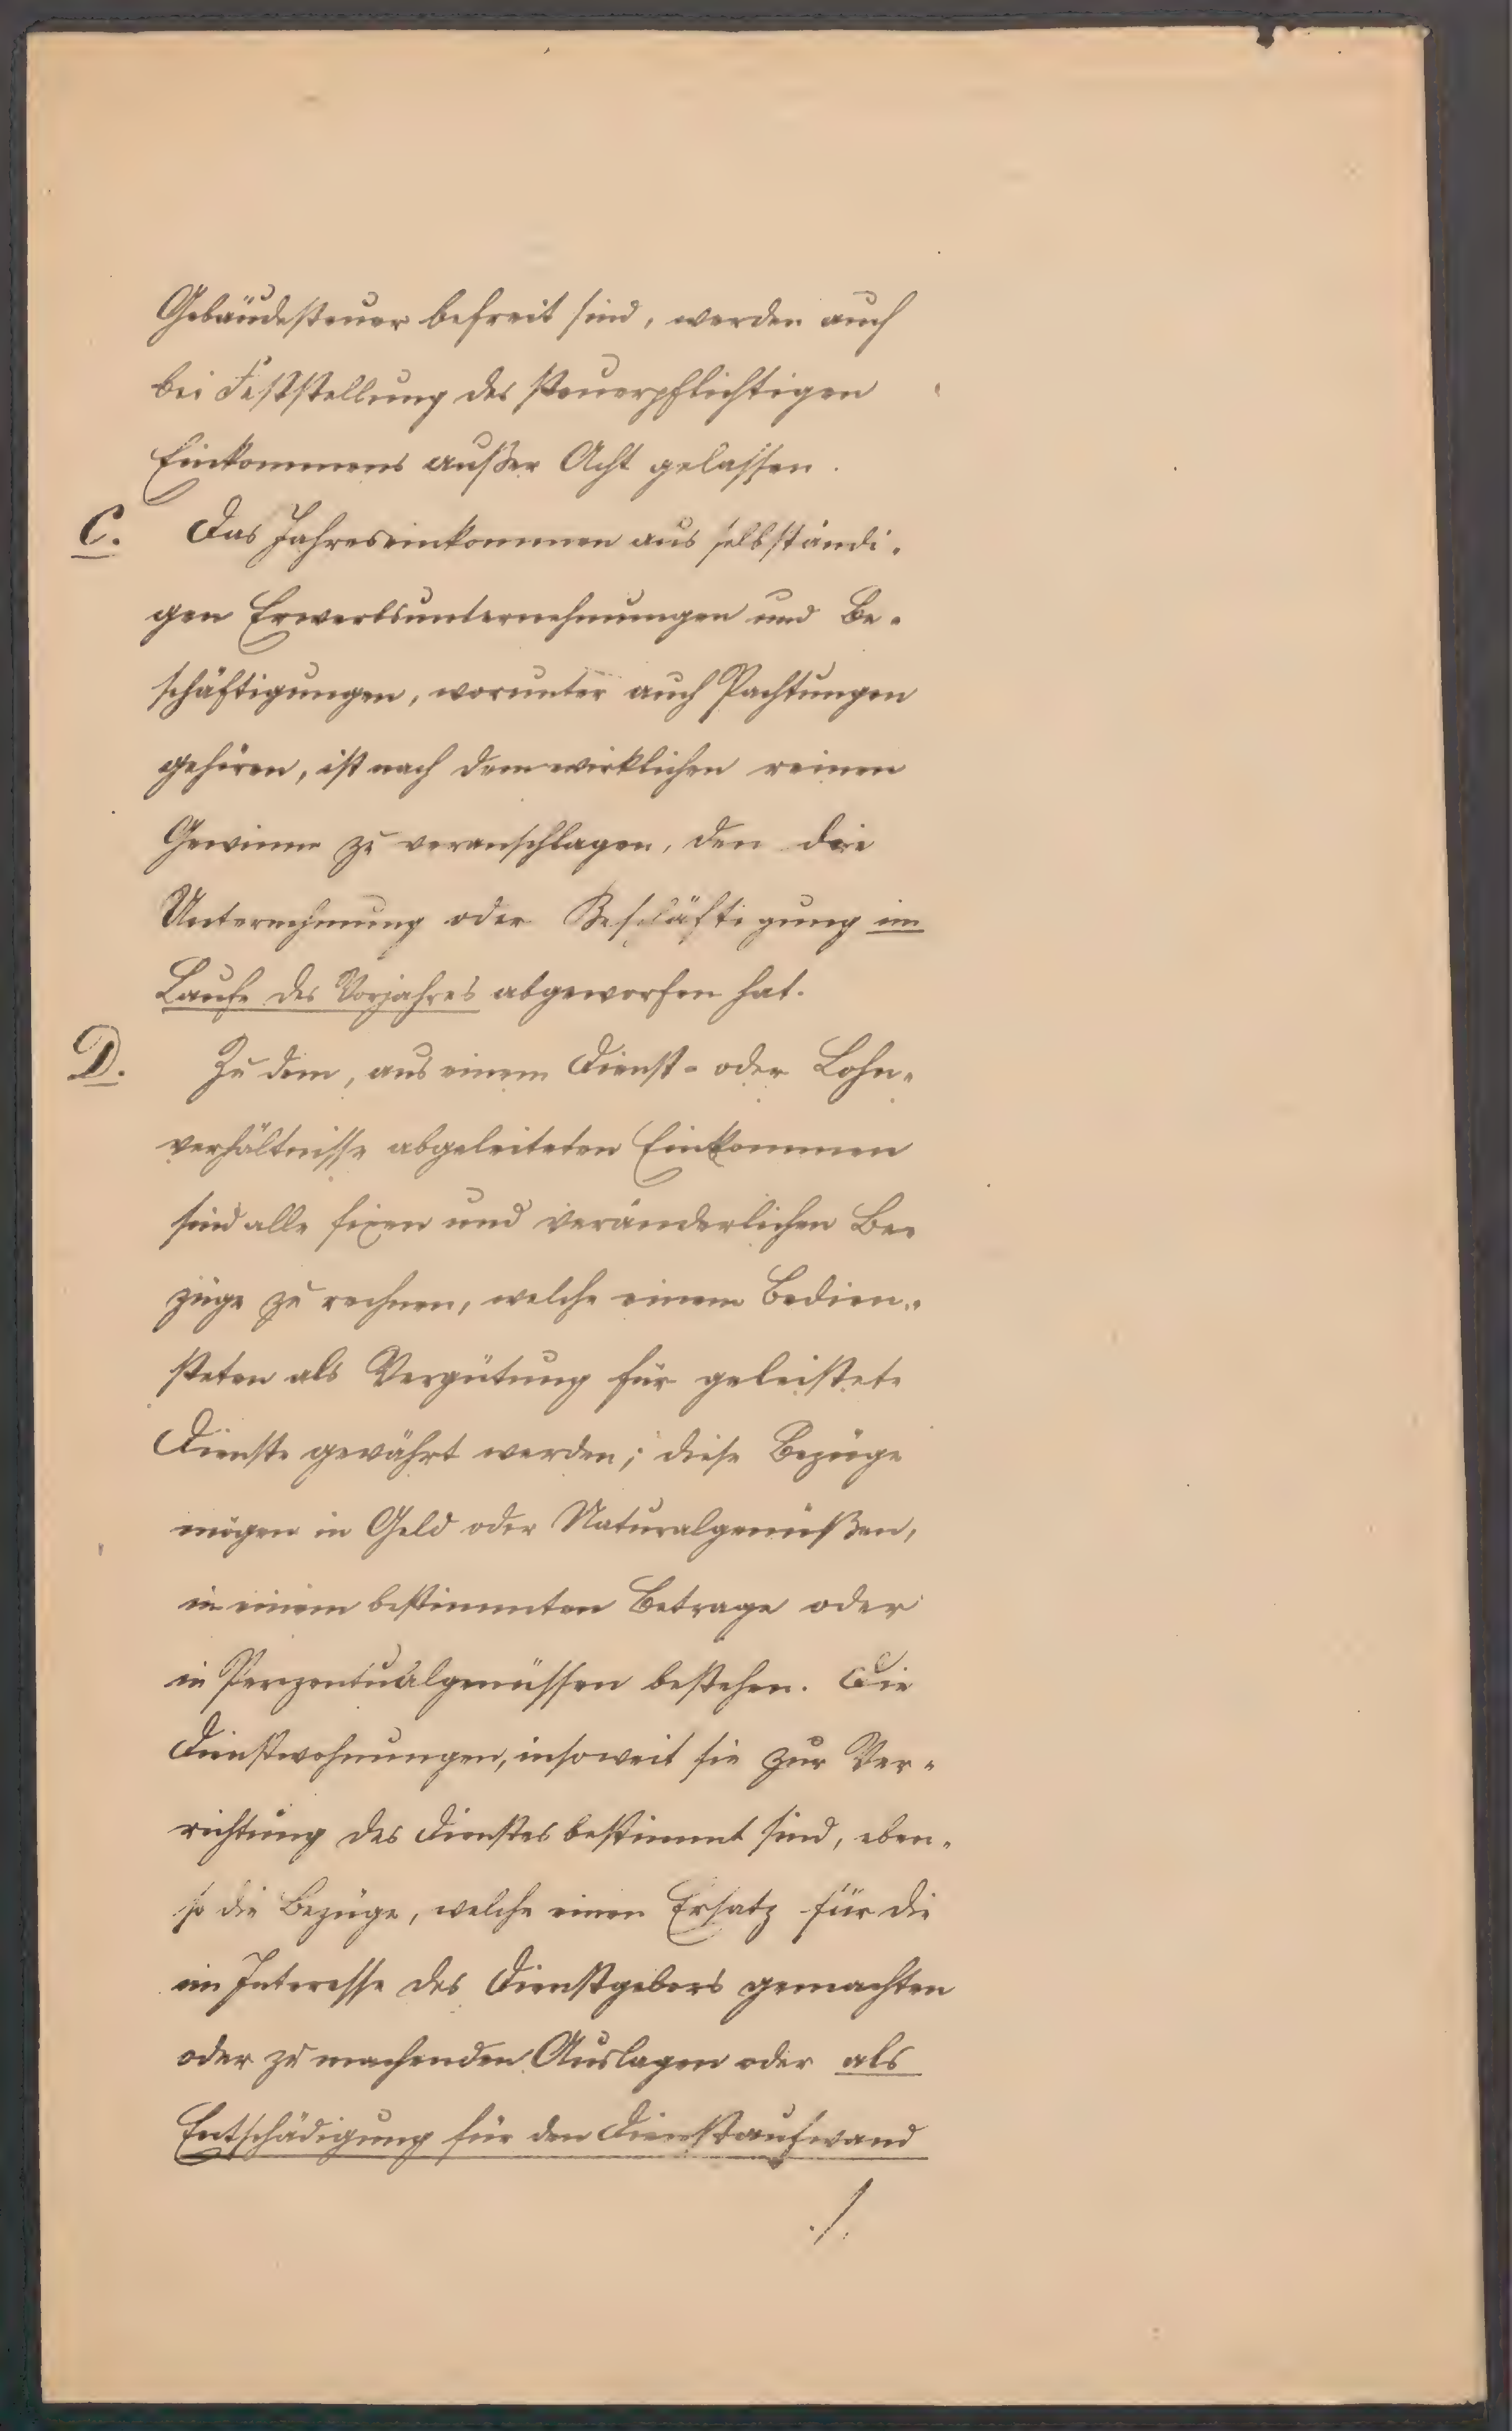 Gebäudesteuer befreit sind, werden auch
bei Feststellung des steuerpflichtigen
Einkommens außer Acht gelassen.
C. Das Jahreseinkommen aus selbständi-
gen Erwerbsunternehmungen und Be-
schäftigungen, worunter auch Pachtungen
gehören, ist nach dem wirklichen reinen
Gewinne zu veranschlagen, den die
Unternehmung oder Beschäftigung im
Laufe des Vorjahres abgeworfen hat.
D. Zu dem, aus einem Dienst- oder Lohn-
verhältnisse abgeleiteten Einkommen
sind alle fixen und veränderlichen Be-
züge zu rechnen, welche einem Bedien-
steten als Vergütung für geleistete
Dienste gewährt werden; diese Bezüge
mögen in Geld oder Naturalgenüßen,
in einem bestimmten Betrage oder
in Perzentualgenüssen bestehen. Die
Dienstwohnungen, insoweit sie zur Ver-
richtung des Dienstes bestimmt sind, eben-
so die Bezüge, welche einen Ersatz für die
im Interesse des Dienstgebers gemachten
oder zu machenden Auslagen oder als
Entschädigung für den Dienstaufwand
./.